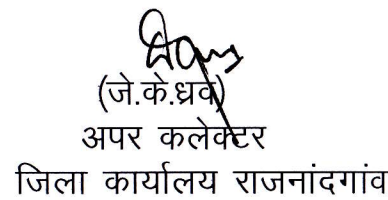 (जे.के.ध्रव)
अपर कलेक्टर
जिला कार्यालय राजनांदगांव